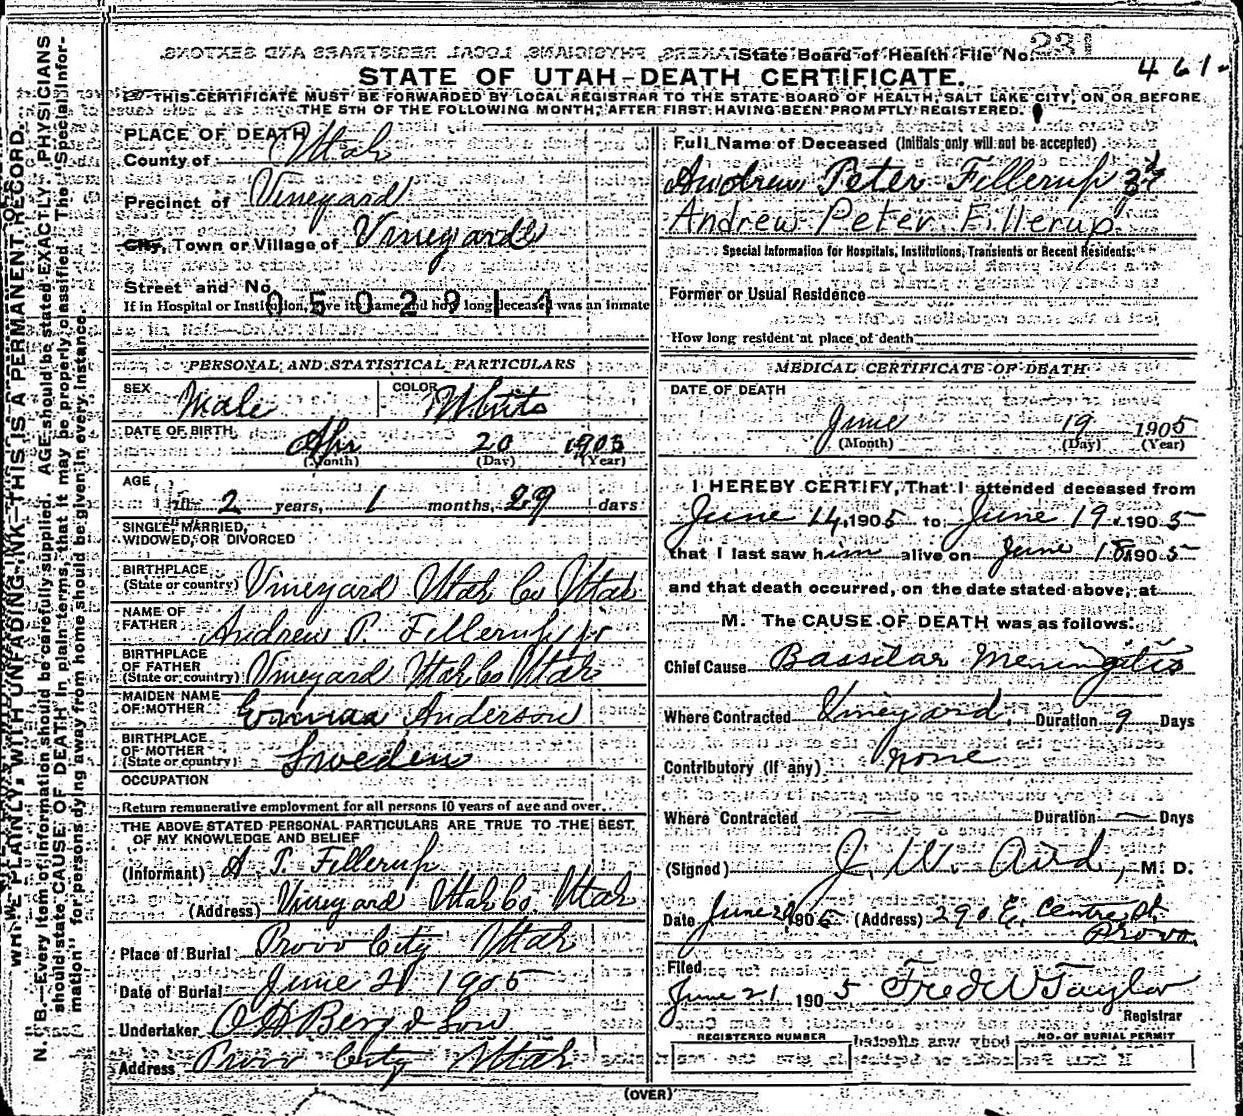 State Board of Health File No. 231
461-
STATE OF UTAH-DEATH CERTIFICATE.
THIS CERTIFICATE MUST BE FORWARDED BY LOCAL REGISTRAR TO THE STATE BOARD OF HEALTH, SALT LAKE CITY, ON OR BEFORE
THE 5TH OF THE FOLLOWING MONTH, AFTER FIRST HAVING BEEN PROMPTLY REGISTERED.
WRITE PLAINLY, WITH UNFADING INK—THIS IS A PERMANENT RECORD.
N. B.—Every item of information should be carefully supplied. AGE should be stated EXACTLY. PHYSICIANS
should state CAUSE OF DEATH in plain terms, that it may be properly classified. The "Special Infor-
mation" for persons dying away from home should be given in every instance.
PLACE OF DEATH
County of Utah
Precinct of Vineyard
City, Town or Village of Vineyard
Street and No.
If in Hospital or Institution, give its name and how long deceased was an inmate
0502914
PERSONAL AND STATISTICAL PARTICULARS
SEX Male COLOR White
DATE OF BIRTH Apr 20 1903
(Month) (Day) (Year)
AGE
2 years, 1 months, 29 days
SINGLE, MARRIED,
WIDOWED, OR DIVORCED
BIRTHPLACE
(State or country) Vineyard Utah Co Utah
NAME OF
FATHER Andrew P. Fillerup jr
BIRTHPLACE
OF FATHER
(State or country) Vineyard Utah Co Utah
MAIDEN NAME
OF MOTHER Emma Anderson
BIRTHPLACE
OF MOTHER
(State or country) Sweden
OCCUPATION
Return remunerative employment for all persons 10 years of age and over.
THE ABOVE STATED PERSONAL PARTICULARS ARE TRUE TO THE BEST
OF MY KNOWLEDGE AND BELIEF
(Informant) A. P. Fillerup
(Address) Vineyard Utah Co. Utah
Place of Burial Provo City Utah
Date of Burial June 21 1905
Undertaker O H Berg & Son
Address Provo City Utah
Full Name of Deceased (Initials only will not be accepted)
Andrew Peter Fillerup 3d
Andrew Peter Fillerup
Special Information for Hospitals, Institutions, Transients or Recent Residents:
Former or Usual Residence
How long resident at place of death
MEDICAL CERTIFICATE OF DEATH
DATE OF DEATH
June 19 1905
(Month) (Day) (Year)
I HEREBY CERTIFY, That I attended deceased from
June 14, 1905 to June 19, 1905
that I last saw him alive on June 18 1905
and that death occurred, on the date stated above, at
M. The CAUSE OF DEATH was as follows:
Chief Cause Bassilar Meningitis
Where Contracted Vineyard. Duration 9 Days
Contributory (if any) None
Where Contracted Duration — Days
(Signed) J. W. Aird, M. D.
Date June 1905 (Address) 290 E. Centre St
Provo.
Filed
June 21 1905 Fred W Taylor
Registrar
REGISTERED NUMBER
NO. OF BURIAL PERMIT
(OVER)